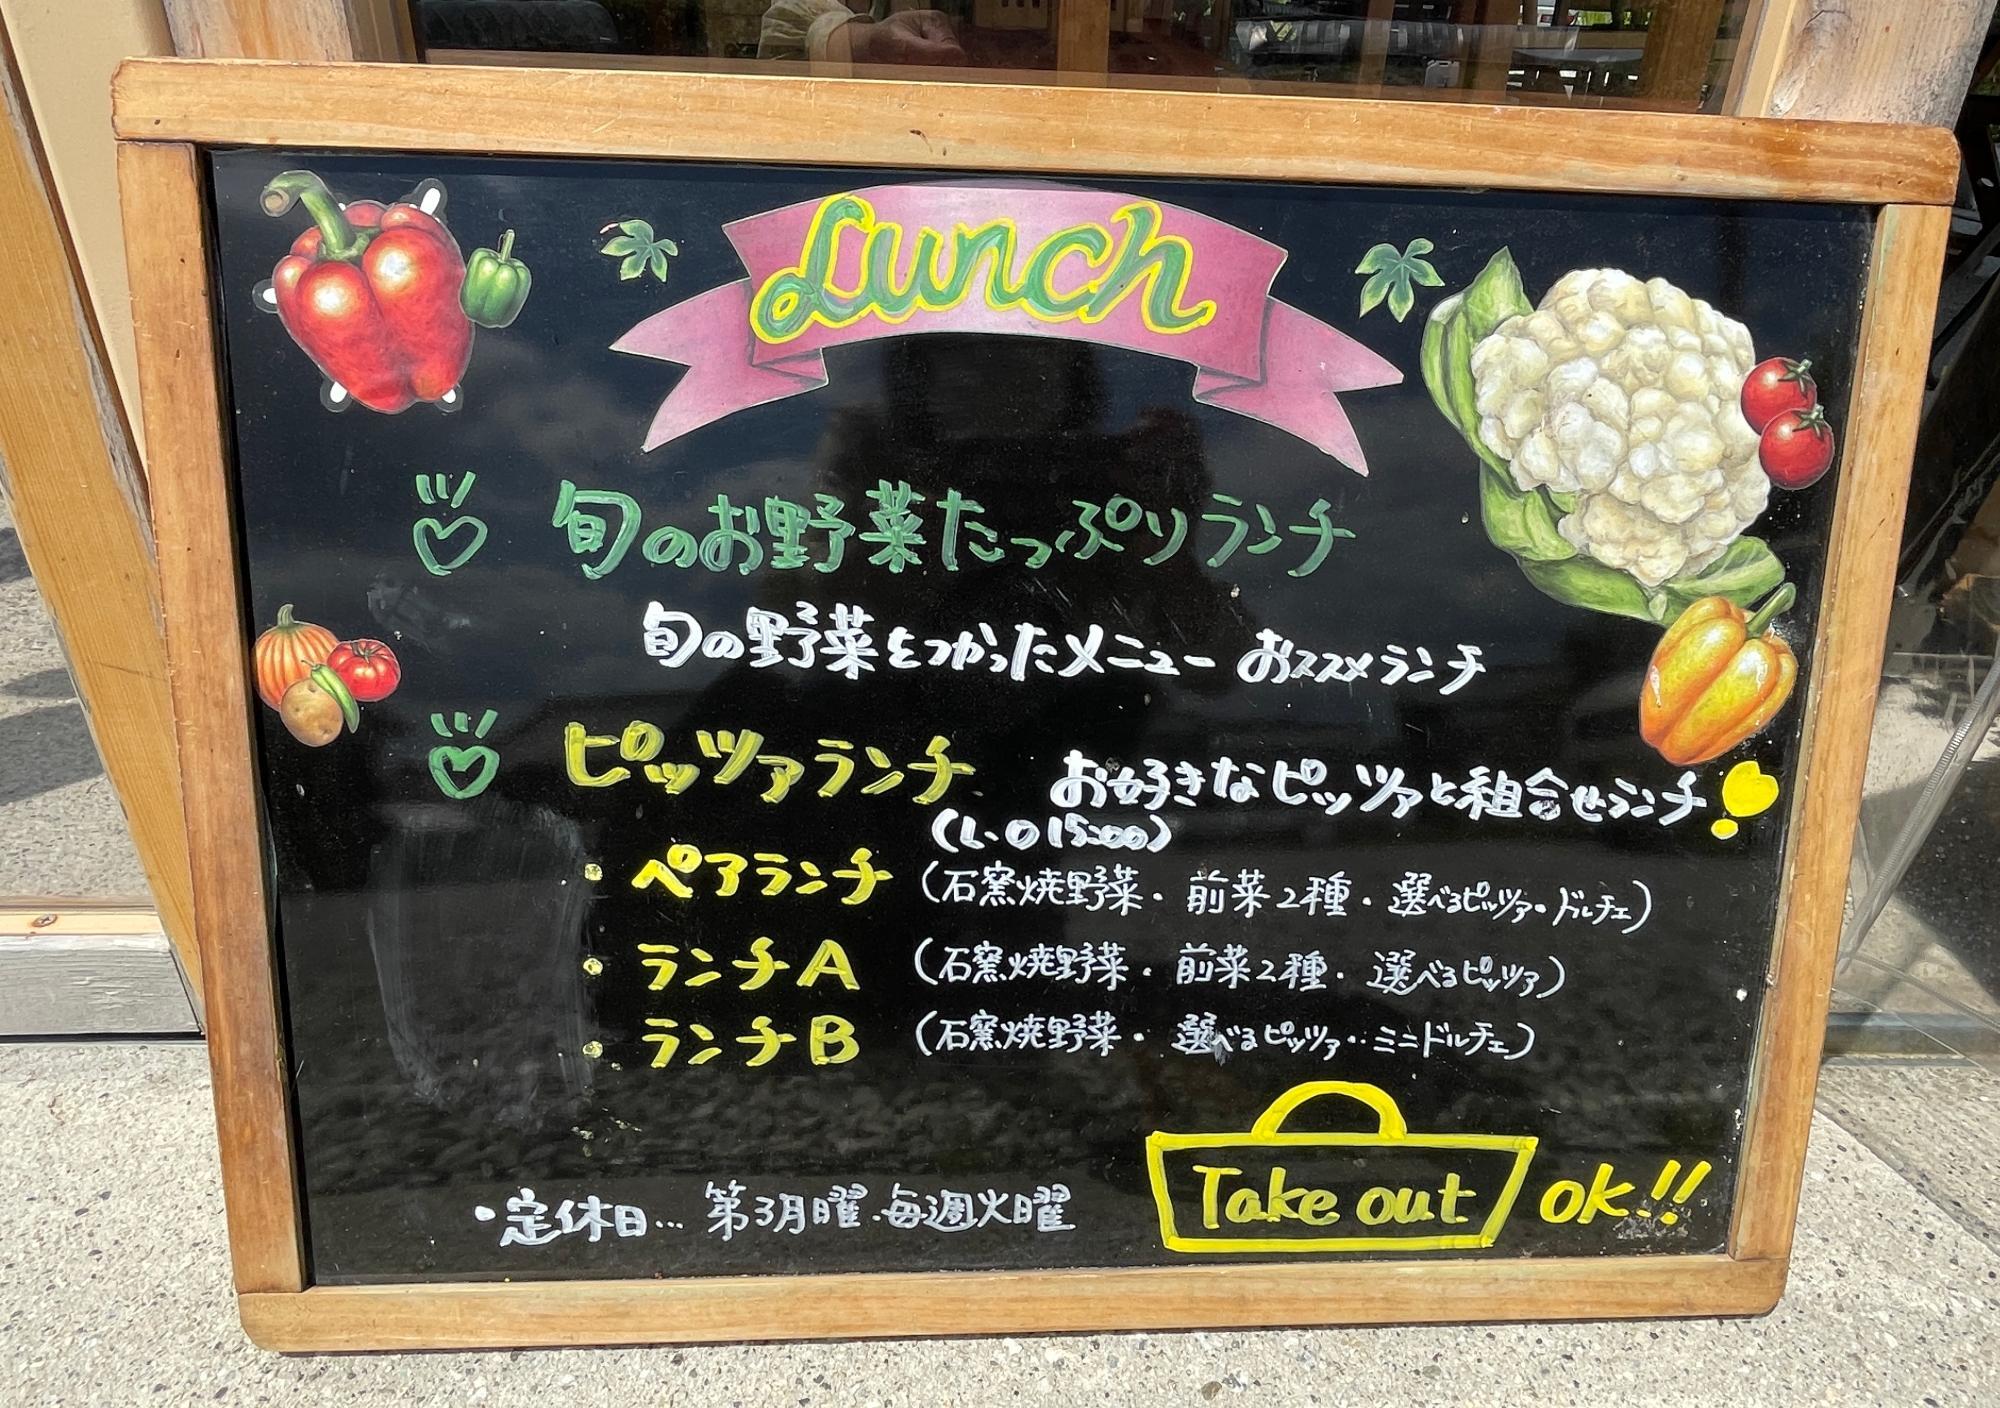 Lunch
旬のお野菜たっぷりランチ
旬の野菜をつかったメニュー おススメランチ
ピッツァランチ お好きなピッツァと組合せランチ
(L.O 15:00)
・ペアランチ (石窯焼野菜・前菜2種・選べるピッツァ・ドルチェ)
・ランチA (石窯焼野菜・前菜2種・選べるピッツァ)
・ランチB (石窯焼野菜・選べるピッツァ・・ミニドルチェ)
・定休日… 第3月曜.毎週火曜
Take out OK!!